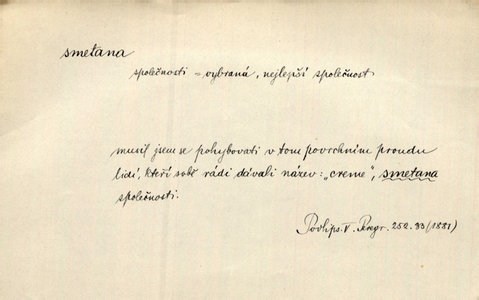 smetana
společnosti = vybraná, nejlepší společnost
musil jsem se pohybovati v tom povrchním proudu
lidí, kteří sobě rádi dávali název: „creme", smetana
společnosti.
Podlips. V. Peregr. 252.33 (1881)